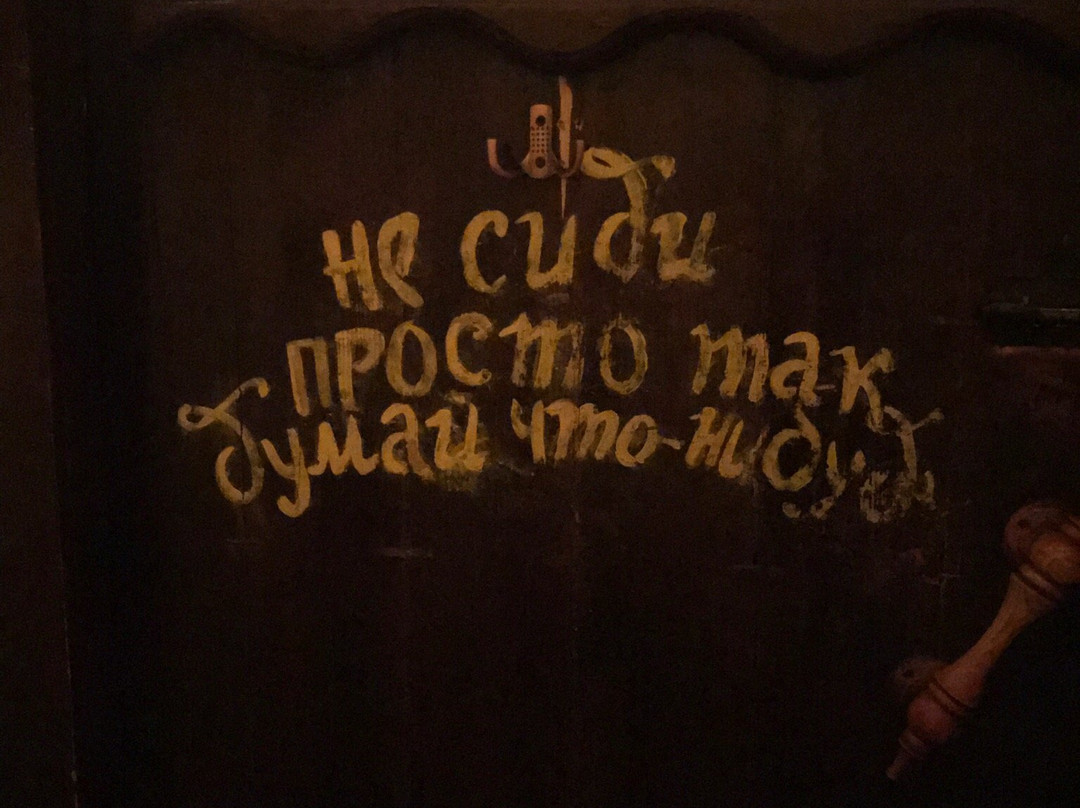 не сиди
просто так
думай что-нибудь